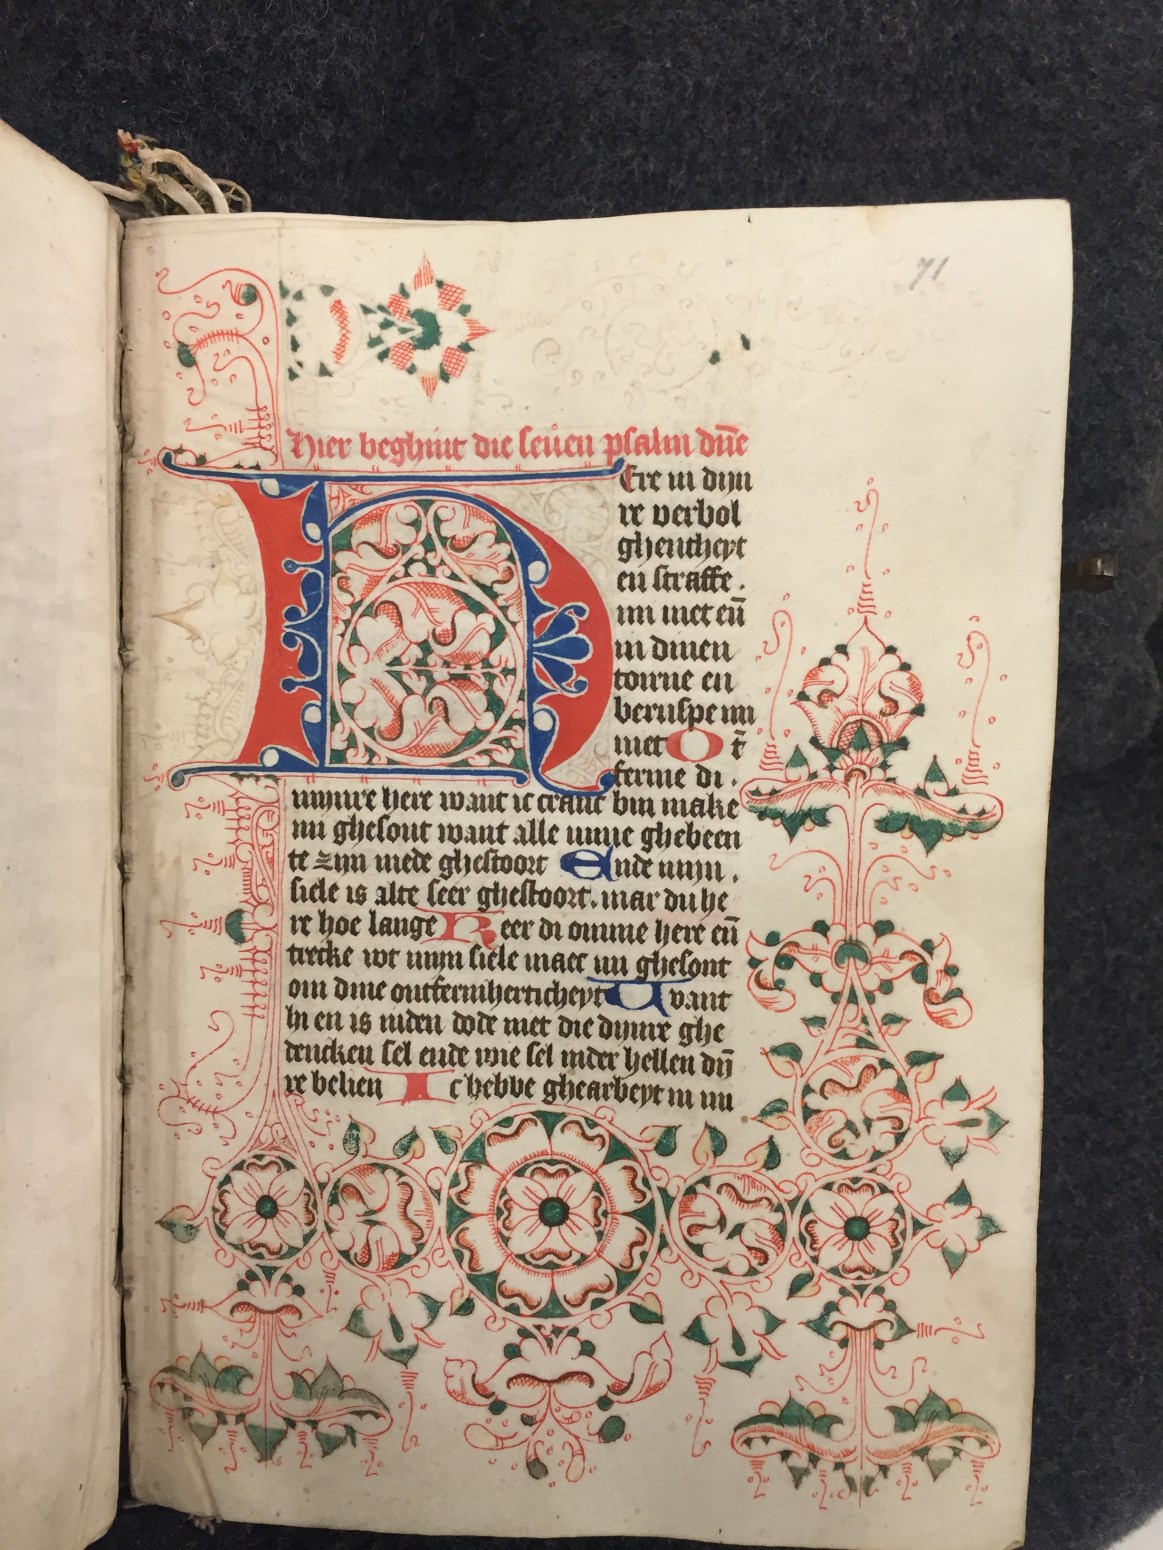 71
Hier beghint die seuen psalm dn̄e
HEre in dijn
re verbol
ghentheyt
en straffe.
mi niet en̄
in dinen
torne en
berispe mi
niet Ot̄
ferme di.
mijnre here want ic cranc bin make
mi ghesont want alle mine ghebeen
te zijn mede ghestoort Ende mijn.
siele is alte seer ghestoort. mar du he
re hoe lange Keer di omme here en̄
trecke wt mijn siele maec mi ghesont
om dine ontfermherticheyt Want
hi en is niden dode niet die dijnre ghe
dencken sel ende wie sel inder hellen dij̄
re belien Ic hebbe ghearbeyt in mi